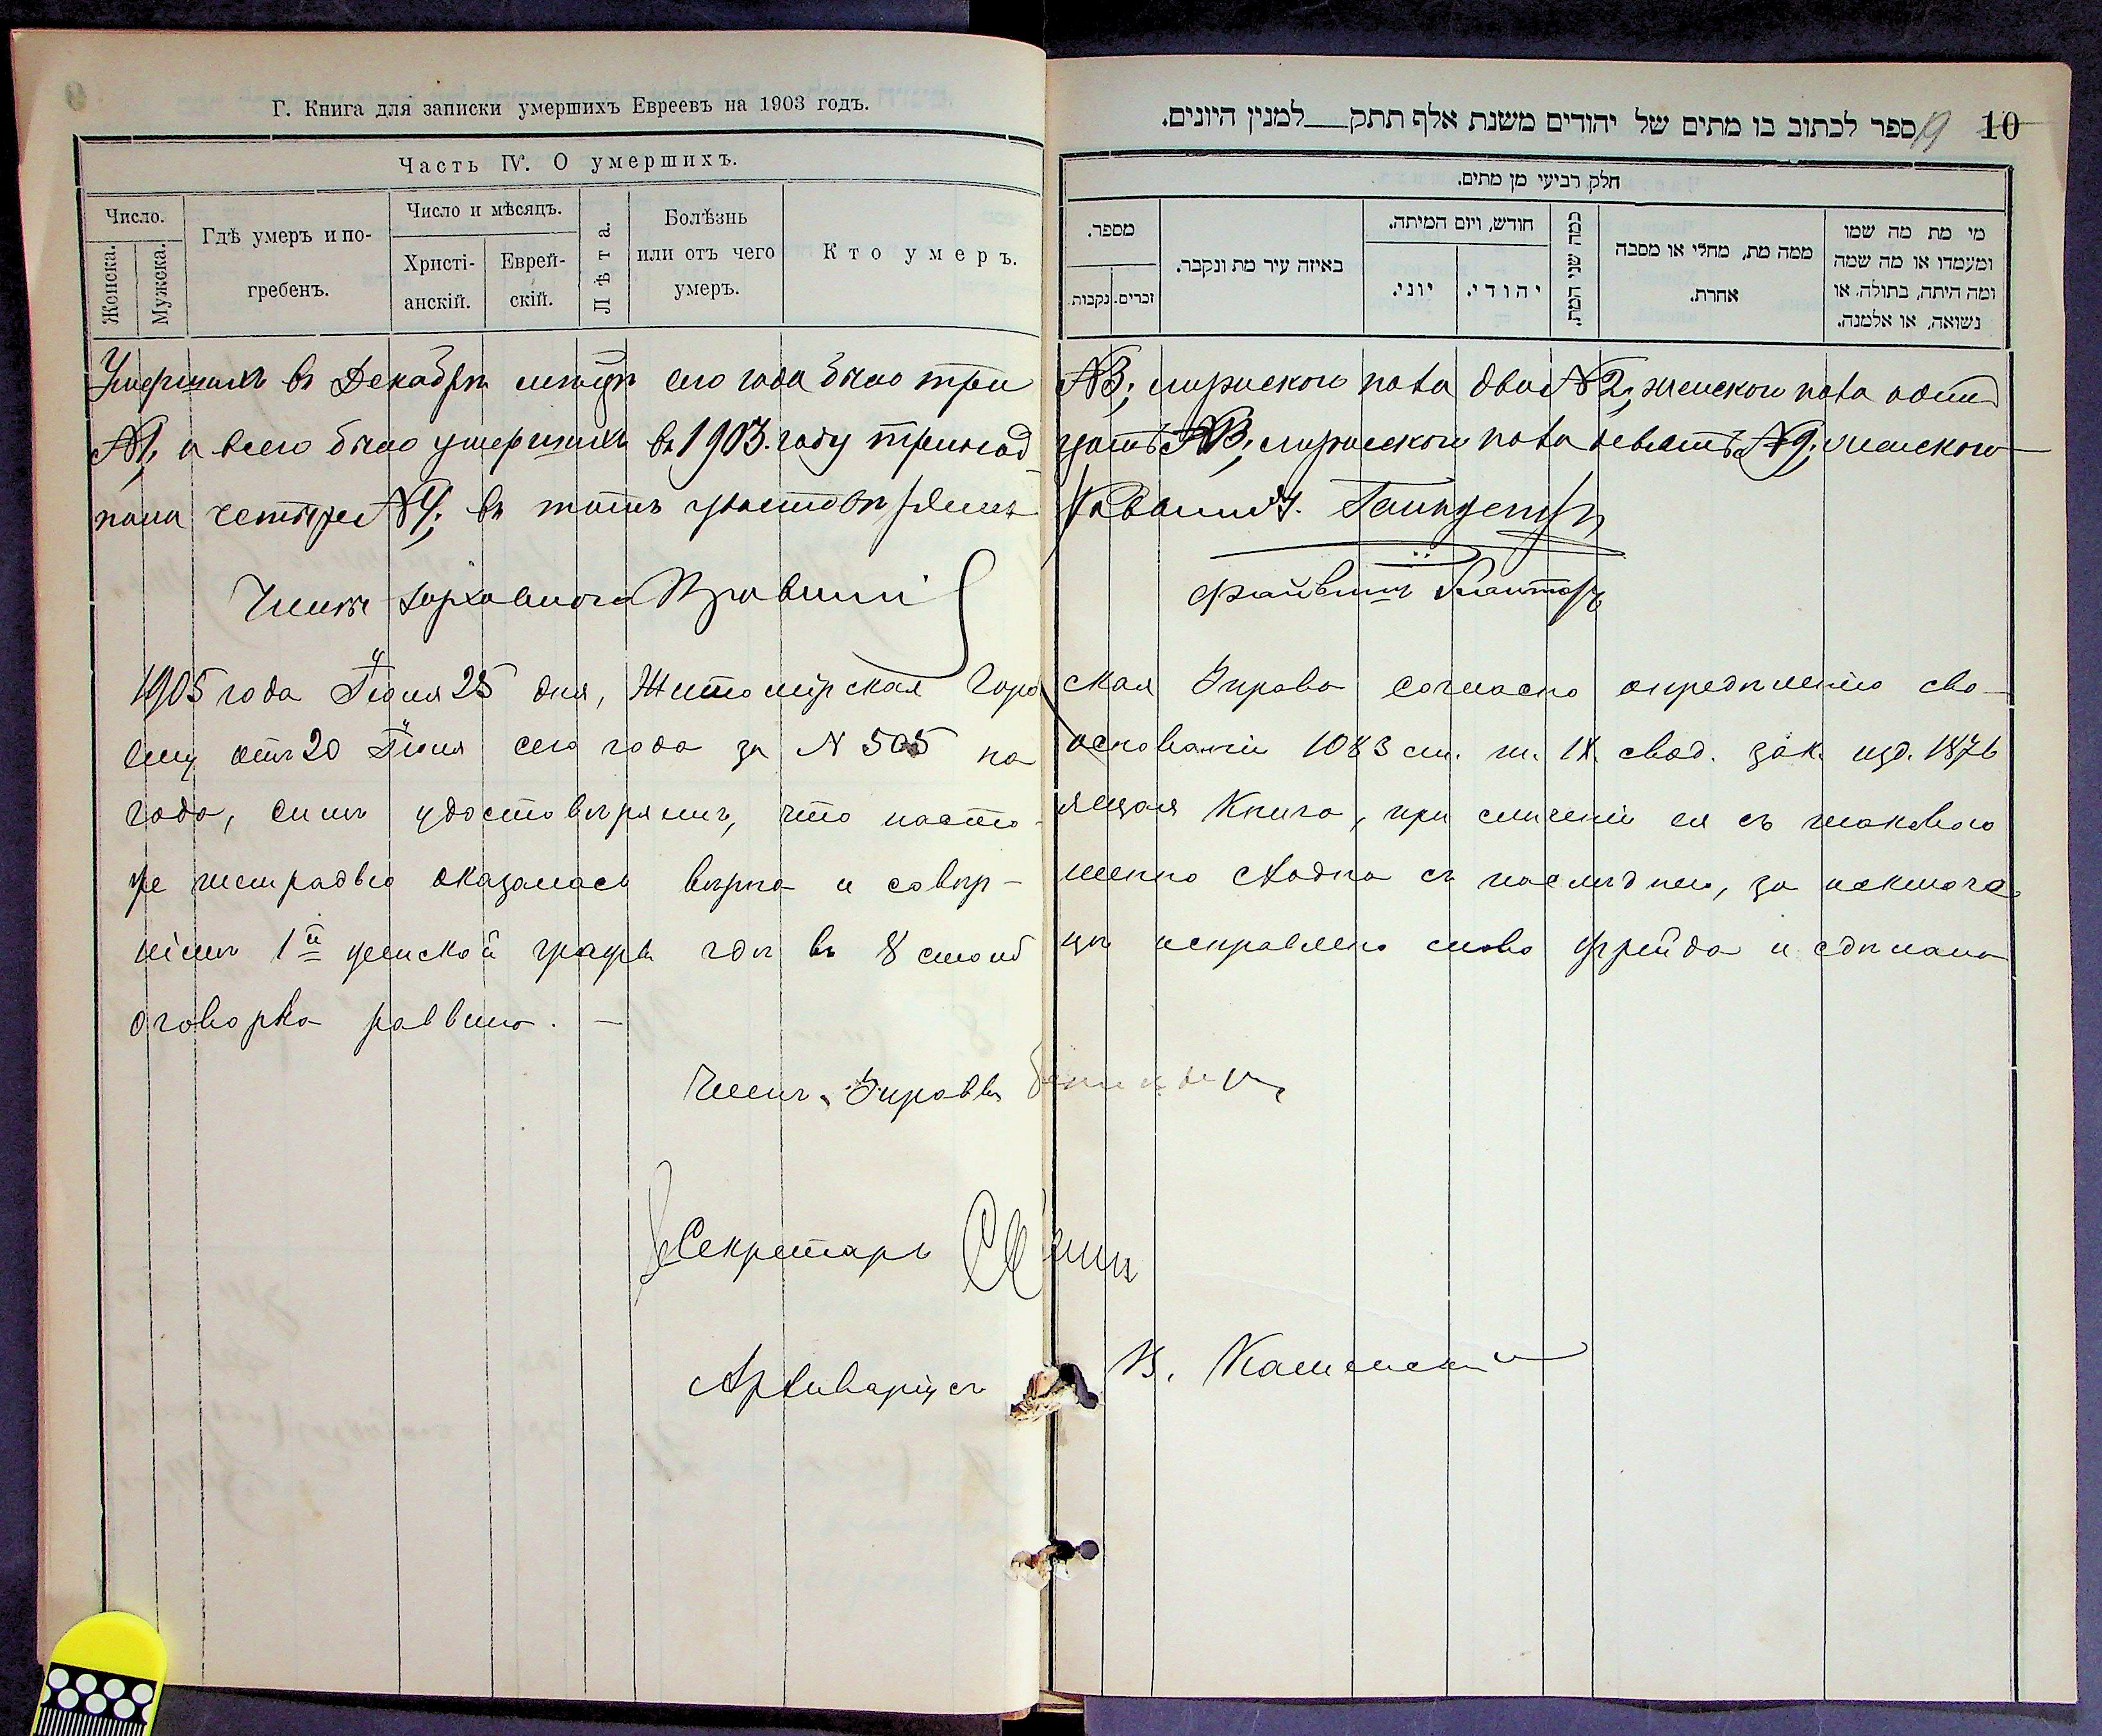 Г. Книга для записки умершихъ Евреевъ на 1903 годъ.
Часть IV. О умершихъ.
Число.
Женска.
Мужска.
Гдѣ умеръ и по-
гребенъ.
Число и мѣсяцъ.
Христі-
анскій.
Еврей-
скій.
Лѣта.
Болѣзнь
или отъ чего
умеръ.
Кто умеръ.
10
19
ספר לכתוב בו מתים של יהודים משנת אלף תתק__למנין היונים.
חלק רביעי מן מתים.
מספר.
נקבות.
זכרים.
באיזה עיר מת ונקבר.
חודש, ויום המיתה.
יוני.
יהודי.
כמה שני המת.
ממה מת, מחלי או מסבה
אחרת.
מי מת מה שמו
ומעמדו או מה שמה
ומה היתה, בתולה, או
נשואה, או אלמנה.
Умершихъ въ Декабрѣ мѣсяцѣ сего года было три №3; мужского пола два №2; женского пола одинъ
№1, а всего было умершихъ въ 1903 году тринад-цать №13; мужского пола девять №9; женского
пола четыре №4; въ томъ удостовѣряемъ Раввинъ
Члены духовнаго Правленія
1905 года Іюня 25 дня, Житомірская Город ская Управа согласно опредѣленію сво-
ему отъ 20 Іюня сего года за N 505 на основаніи 1083 ст. т. IX свод. зак. изд. 1876
года, симъ удостовѣряетъ, что насто-ящая Книга, при сличеніи ея съ таковою
же тетрадью оказалась вѣрна и совер-шенно сходна съ послѣднею, за исключе
ніемъ 1й женской графы гдѣ въ 8 столб цѣ исправлено слово Фрейда и сдѣлана
оговорка раввина. —
Членъ Управы
Секретарь
Архиваріусъ В. Каменскій